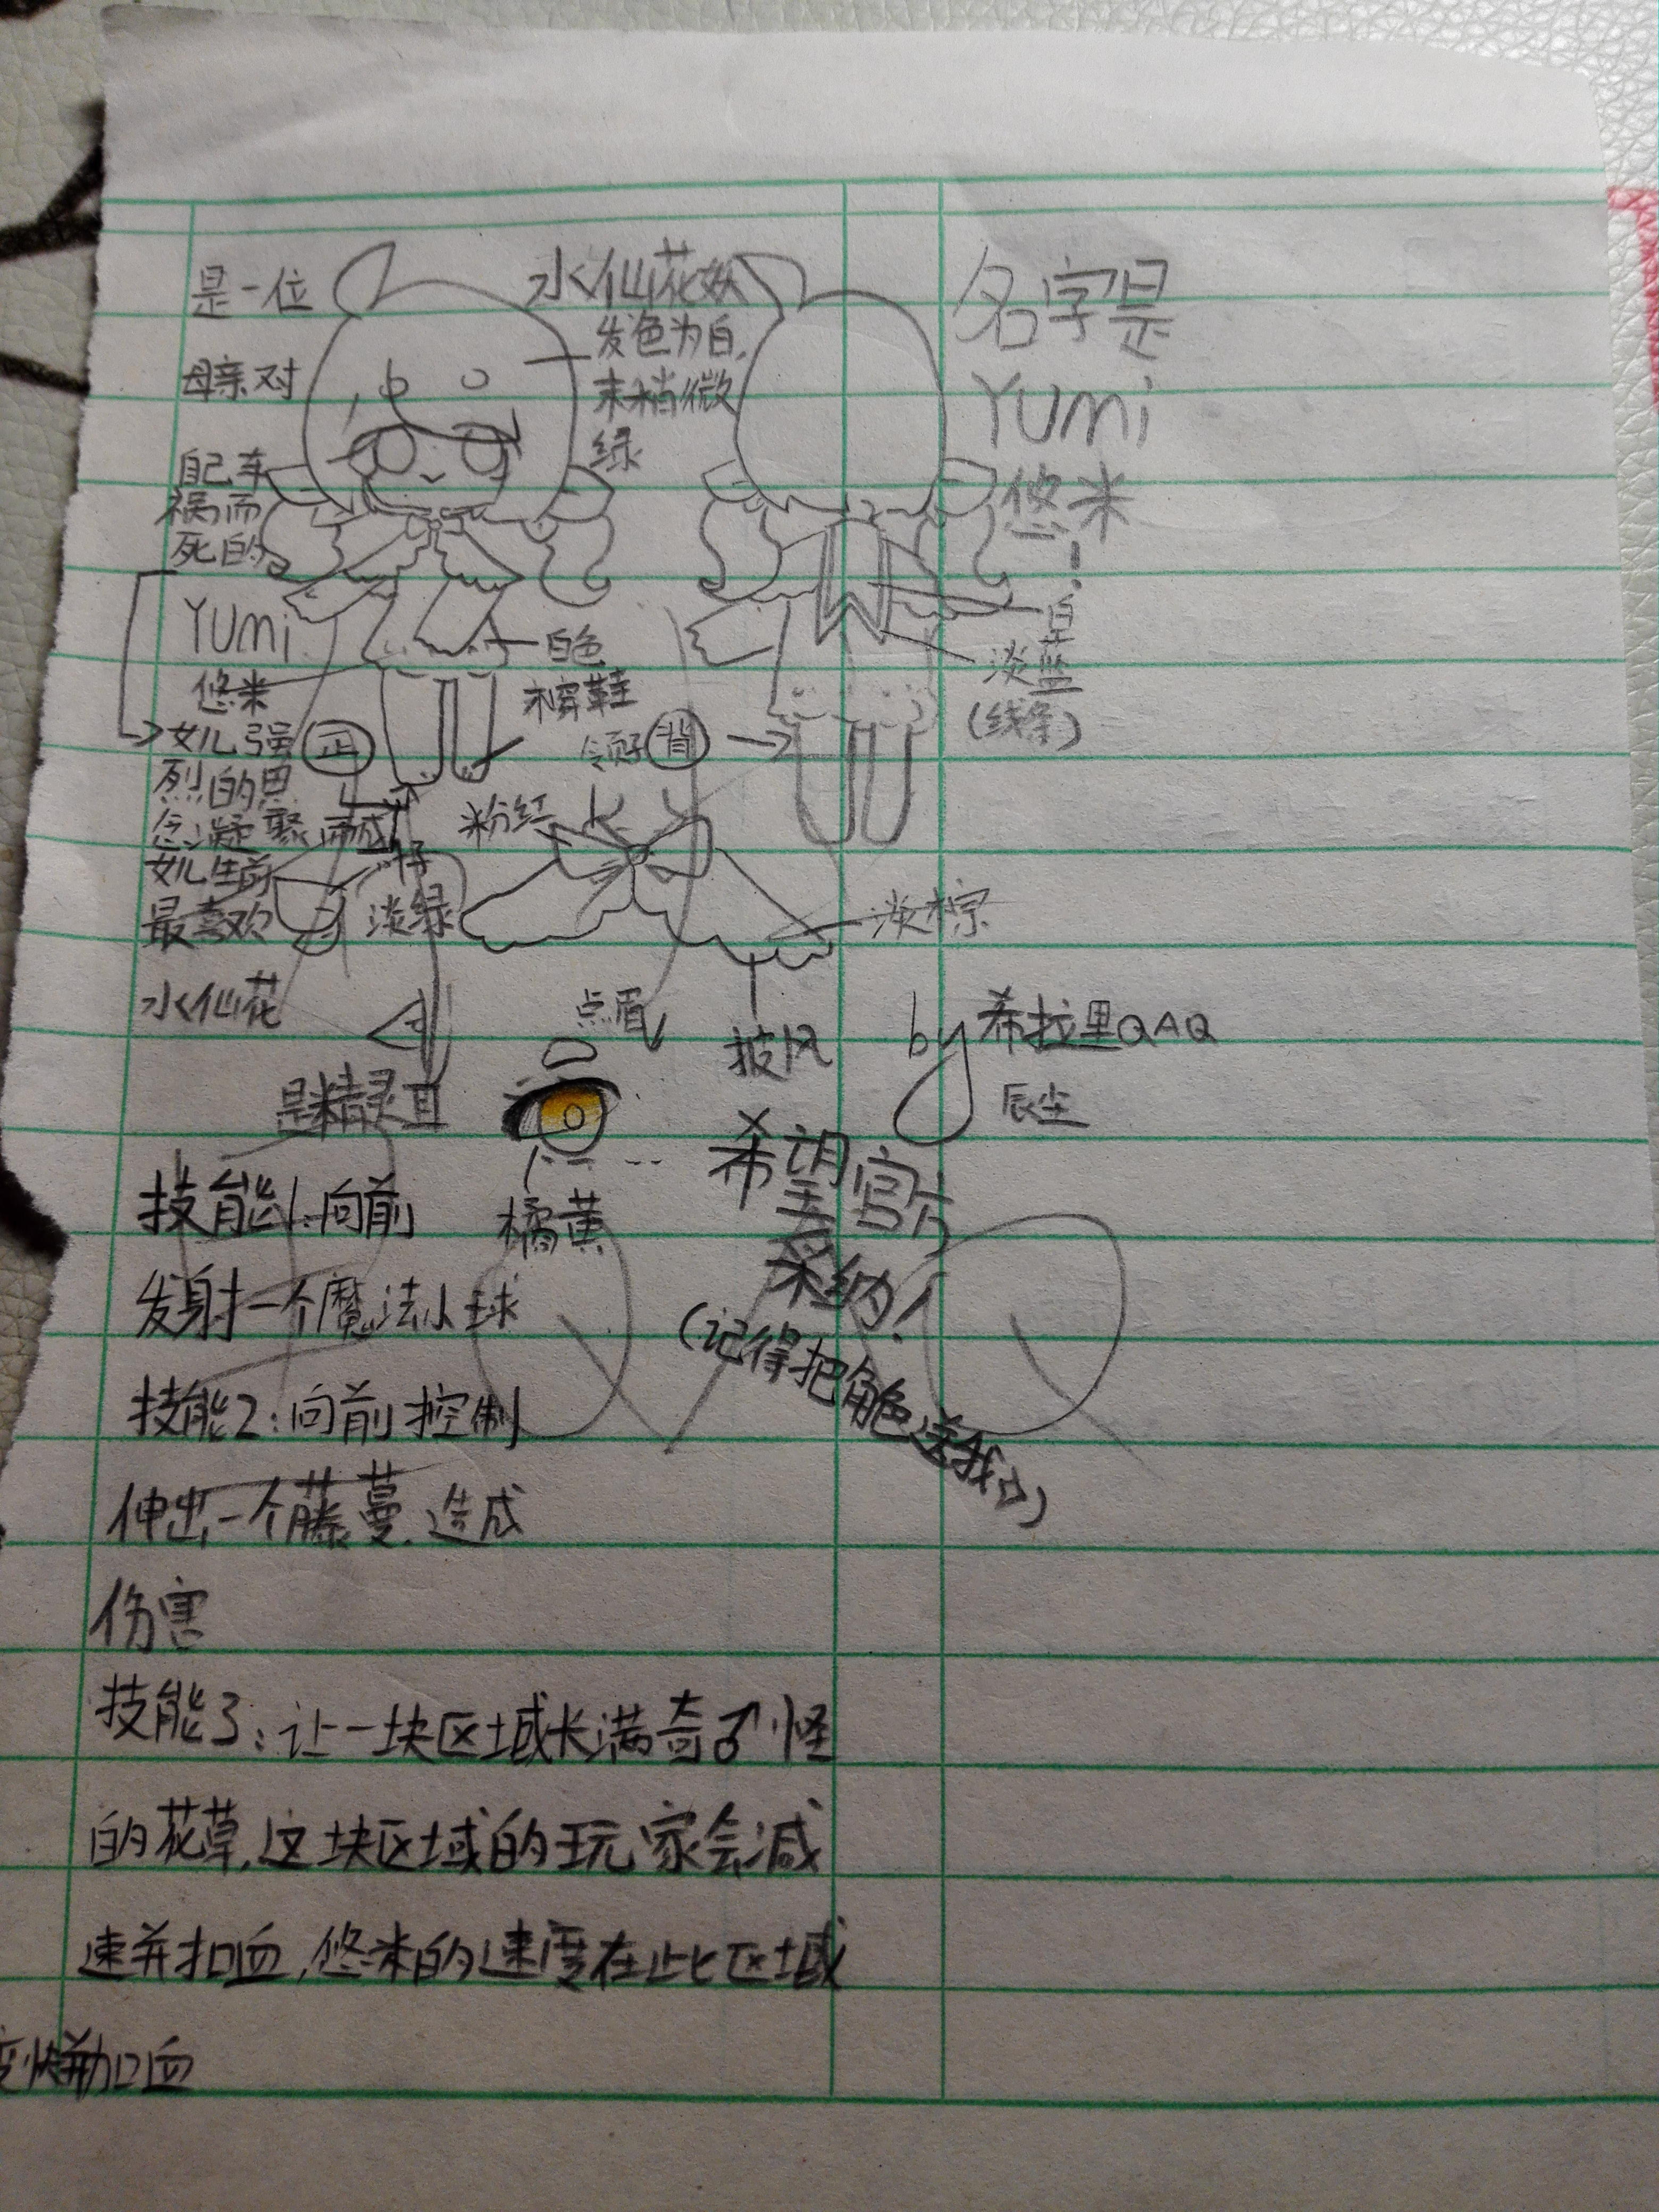 是一位
母亲对
自己车
祸而
死的
Yumi
悠米
女儿强
烈的思
念凝聚而成
女儿生前
最喜欢
水仙花
水仙花妖
发色为白,
末梢微
绿
名字是
Yumi
悠米!
白色
棕鞋
正
背
白
淡蓝
(线条)
粉红
淡绿
淡棕
披风
点眉
是精灵耳
橘黄
by 希拉里QAQ
辰尘
希望官方
采纳!
(记得把角色送我
技能1:向前
发射一个魔法小球
技能2:向前控制
伸出一个藤蔓.造成
伤害
技能3:让一块区域长满奇♂怪
的花草,这块区域的玩家会减
速并扣血,悠米的速度在此区域
变快并加血